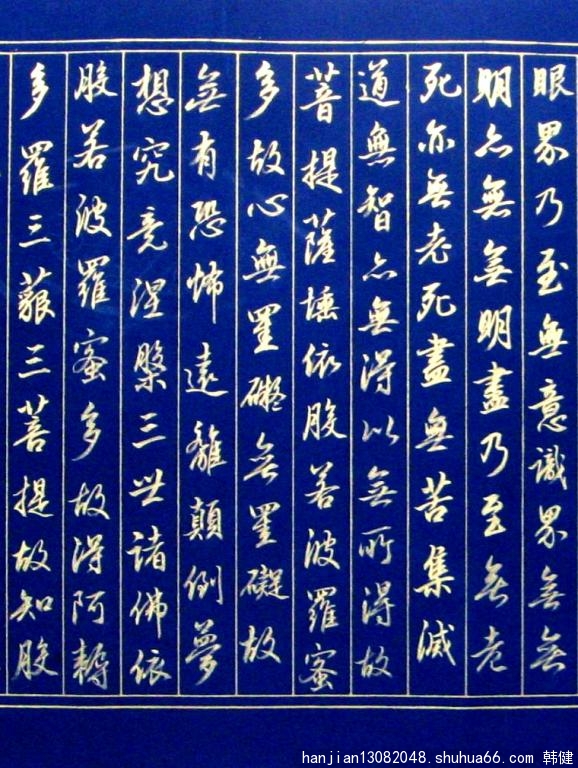 眼界乃至無意識界無無
明亦無無明盡乃至無老
死亦無老死盡無苦集滅
道無智亦無得以無所得故
菩提薩埵依般若波羅蜜
多故心無罣礙無罣礙故
無有恐怖遠離顛倒夢
想究竟涅槃三世諸佛依
般若波羅蜜多故得阿耨
多羅三藐三菩提故知般
hanjian13082048.shuhua66.com 韩健